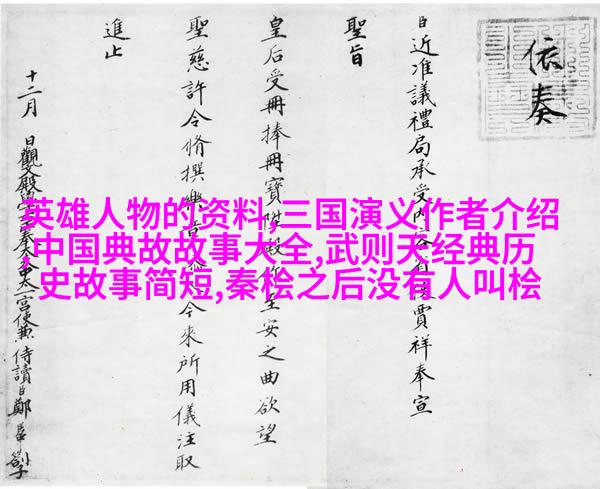 依奏
臣近准議禮局承受賈祥奉宣
聖旨
皇后受冊捧冊寶至安之曲欲望
聖慈許令脩撰樂今來所用儀注取
進止
十二月 日觀文殿宮使兼侍讀臣鄭
英雄人物的资料,三国演义作者介绍
中国典故故事大全,武则天经典历
史故事简短,秦桧之后没有人叫桧